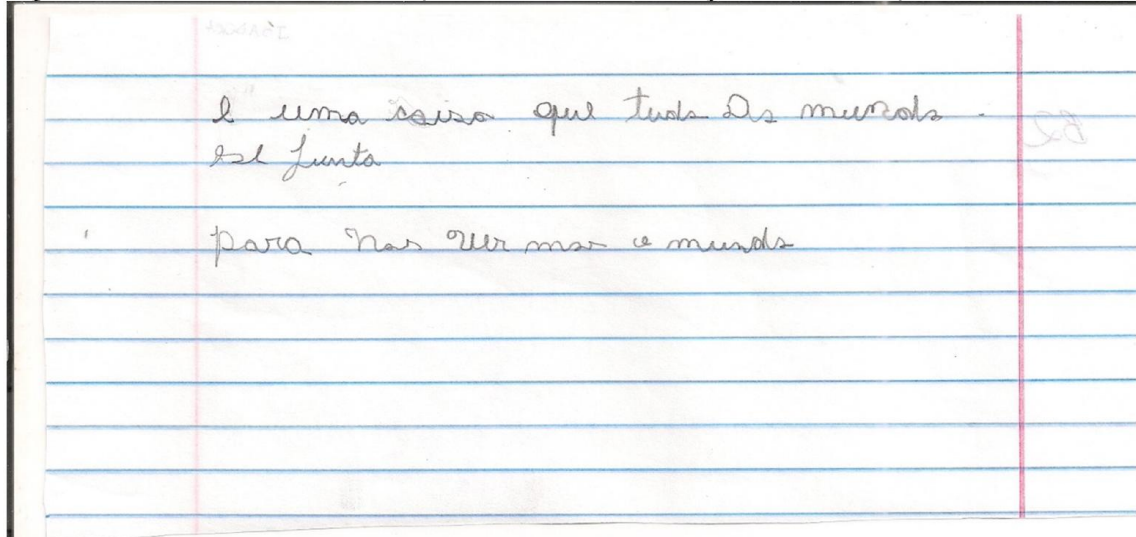 e uma coisa que tudo Os mundo
ese Junta
para nos ver mos o mundo